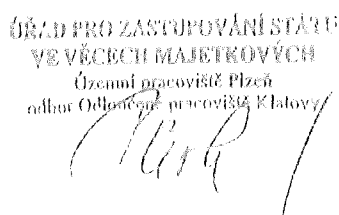 ÚŘAD PRO ZASTUPOVÁNÍ STÁTU
VE VĚCECH MAJETKOVÝCH
Územní pracoviště Plzeň
odbor Odloučené pracoviště Klatovy